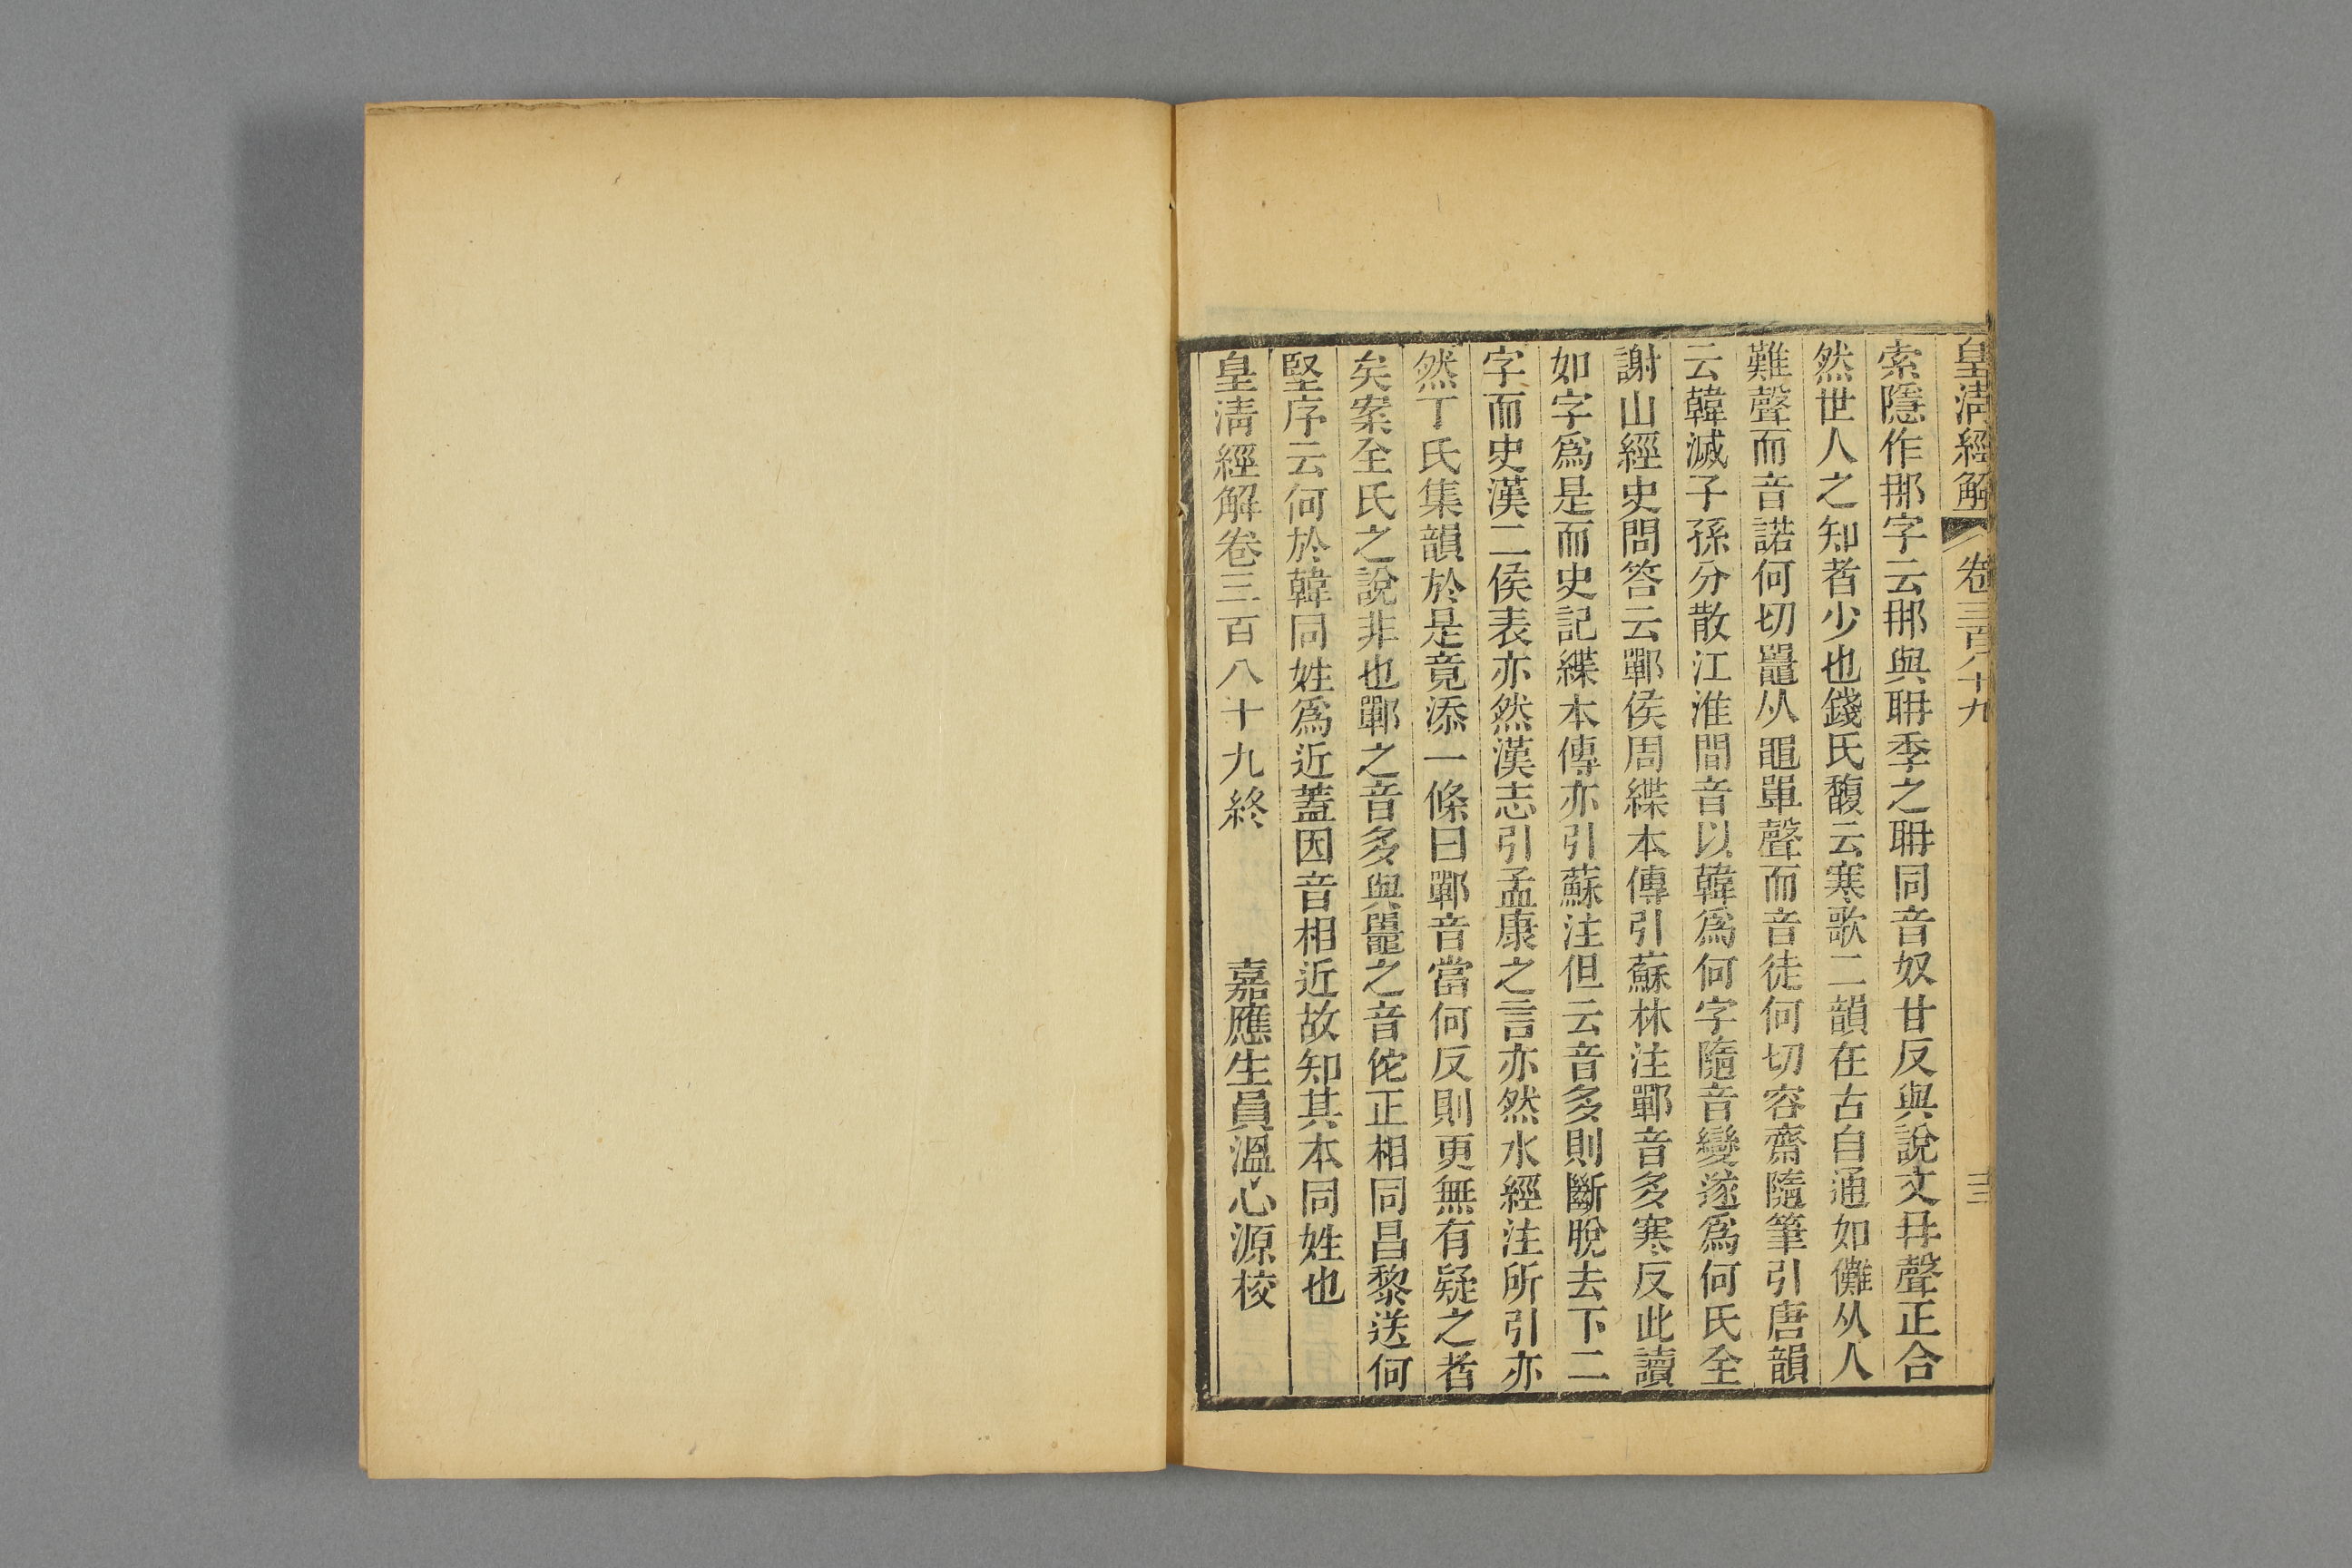 皇清經解 卷三百八十九 十三
索隱作𨙻字云𨙻與聃季之聃同音奴甘反與說文冄聲正合
然世人之知者少也錢氏馥云寒歌二韻在古自通如儺从人
難聲而音諾何切鼉从黽單聲而音徒何切容齋隨筆引唐韻
云韓滅子孫分散江淮間音以韓爲何字隨音變遂爲何氏全
謝山經史問答云鄲侯周緤本傳引蘇林注鄲音多寒反此讀
如字爲是而史記緤本傳亦引蘇注但云音多則斷脫去下二
字而史漢二侯表亦然漢志引孟康之言亦然水經注所引亦
然丁氏集韻於是竟添一條曰鄲音當何反則更無有疑之者
矣案全氏之說非也鄲之音多與鼉之音佗正相同昌黎送何
堅序云何於韓同姓爲近蓋因音相近故知其本同姓也
皇清經解卷三百八十九終 嘉應生員溫心源校